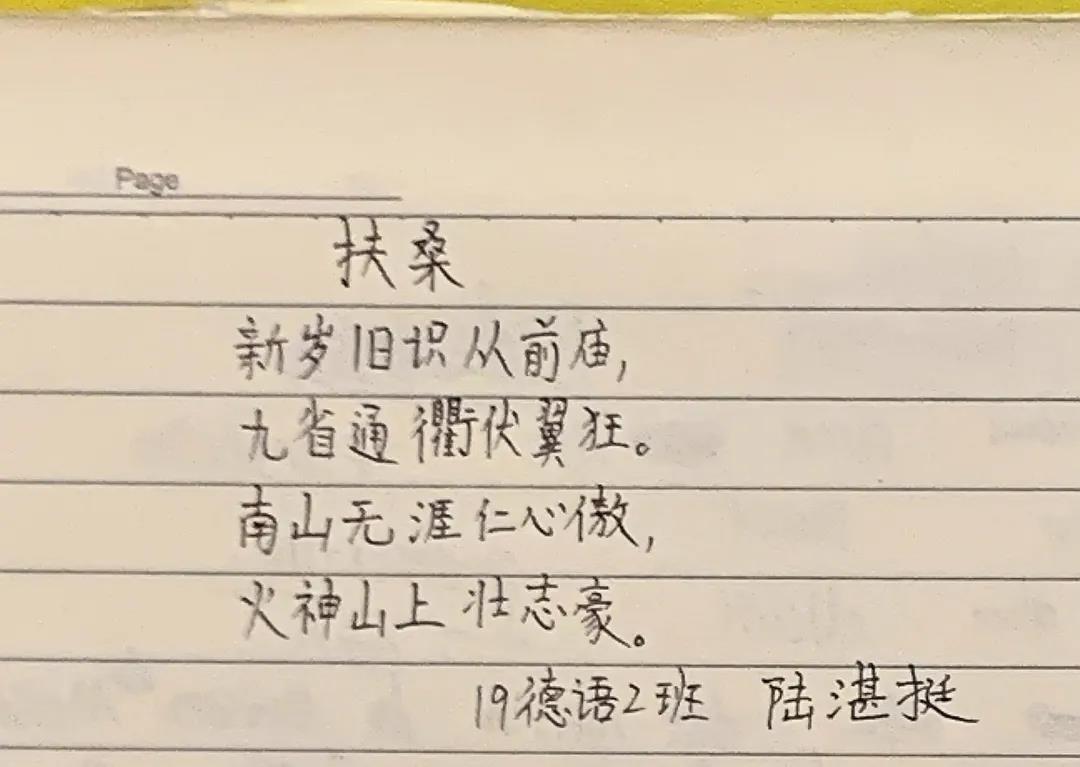 Page
扶桑
新岁旧识从前庙,
九省通衢伏翼狂。
南山无涯仁心傲,
火神山上壮志豪。
19德语2班 陆湛挺